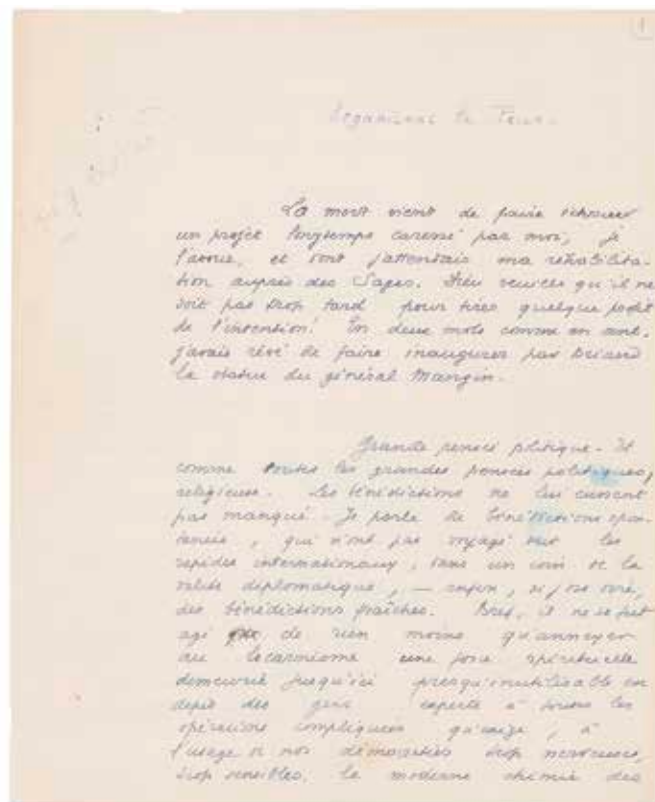 1
Organisons la Paix.
La mort vient de faire échouer
un projet longtemps caressé par moi, je
l'avoue, et dont j'attendais ma réhabilita-
tion auprès des Sages. Dieu veuille qu'il ne
soit pas trop tard pour tirer quelque profit
de l'intention! En deux mots comme en cent,
j'avais rêvé de faire inaugurer par Briand
la statue du général Mangin.
Grande pensée politique. Et
comme toutes les grandes pensées politiques,
religieuse. Les bénédictions ne lui eussent
pas manqué. Je parle de bénédictions spon-
tanées, qui n'ont pas voyagé sur les
rapides internationaux, dans un coin de la
valise diplomatique, — enfin, si j'ose dire,
des bénédictions fraîches. Bref, il ne se fût
agi de rien moins qu'annexer
au locarnisme une force spirituelle
demeurée jusqu'ici presqu'inutilisable en
dépit des gens experts à toutes les
opérations compliquées qu'exige, à
l'usage de nos démocraties trop nerveuses,
trop sensibles, la moderne chimie des